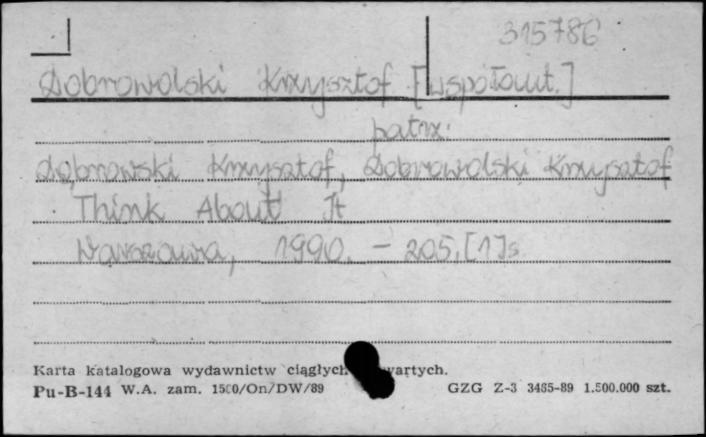 315786
Dobrowolski Krzysztof [współaut.]
patrz:
Dąbrowski Krzysztof, Dobrowolski Krzysztof
Think About It
Warszawa, 1990. - 205,[1]s
Karta katalogowa wydawnictw ciągłych wartych.
Pu-B-144 W.A. zam. 1500/On/DW/89 GZG Z-3 3485-89 1.500.000 szt.